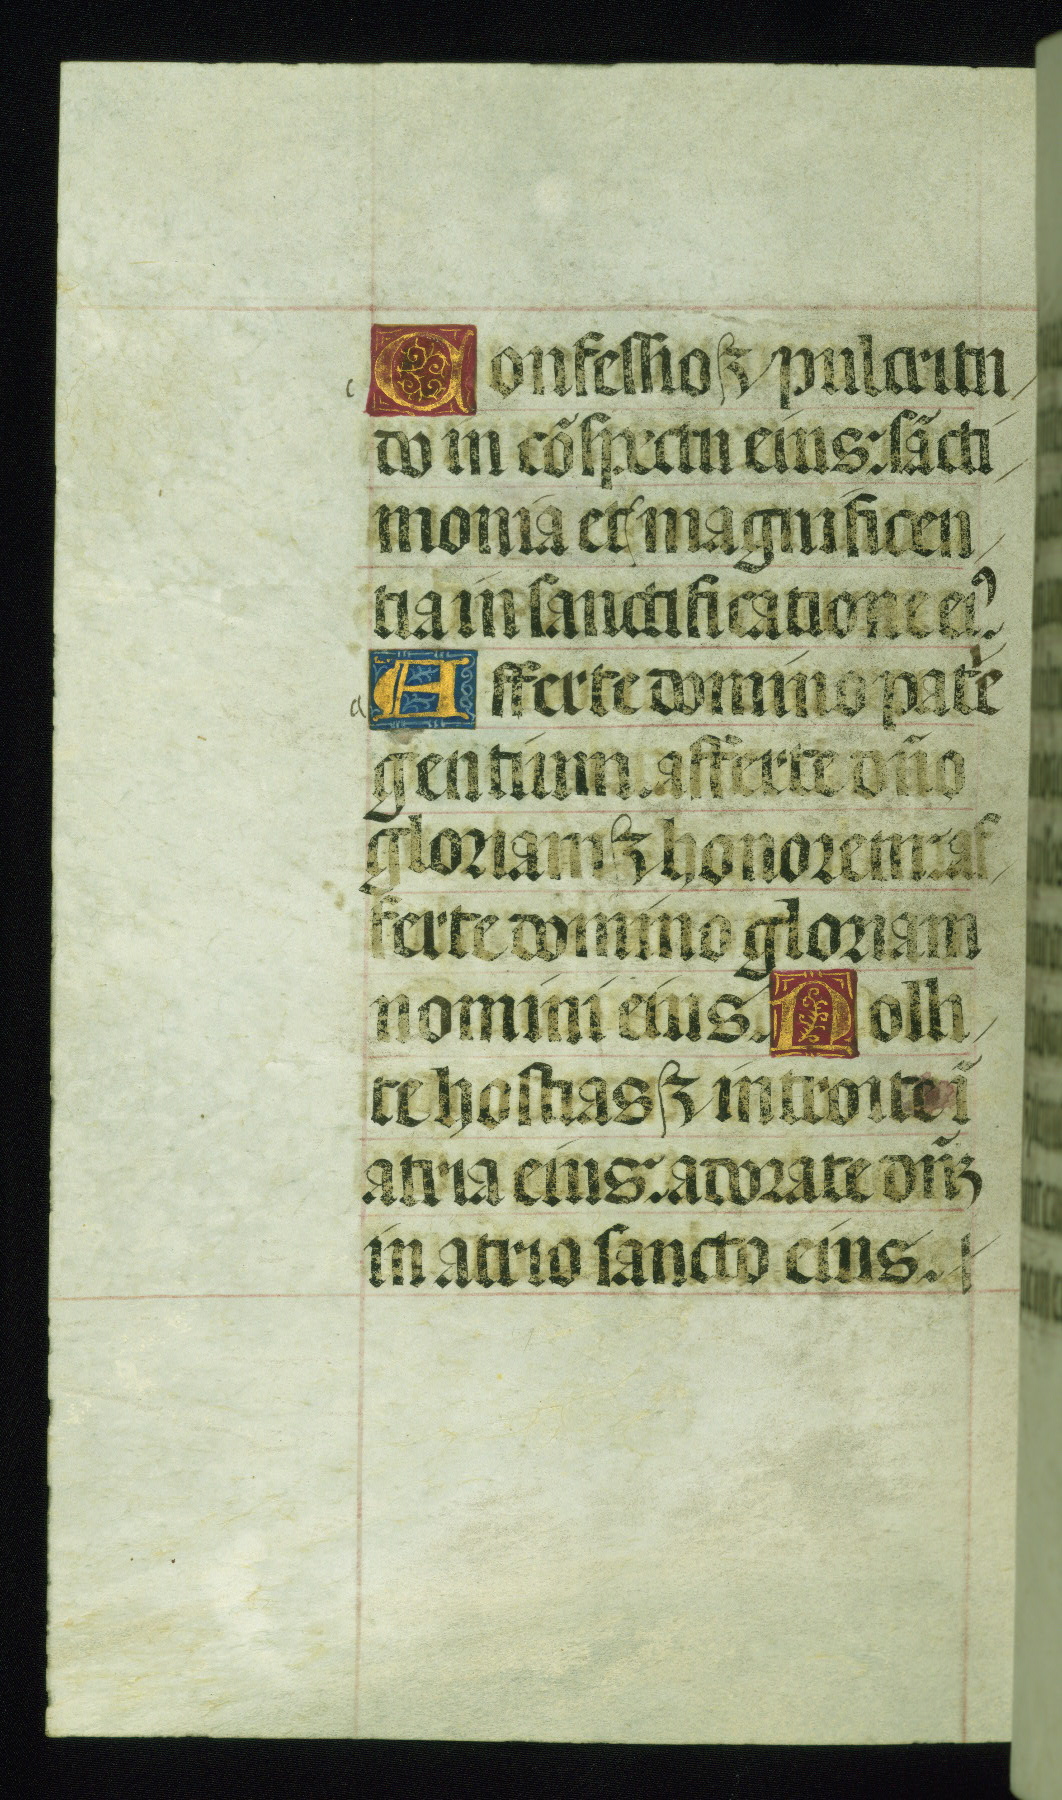 c Confessio ⁊ pulcritu/
do in cõspectu eius: sãcti/
monia et magnificen/
tia in sanctificatione eiꝰ.
a Afferte domino patrẽ
gentium. afferte dño
gloriam ⁊ honorem: af/
ferte domino gloriam
nomini eius. Tolli/
te hostias ⁊ introite ĩ
atria eius: adorate dñʒ
in atrio sancto eius.